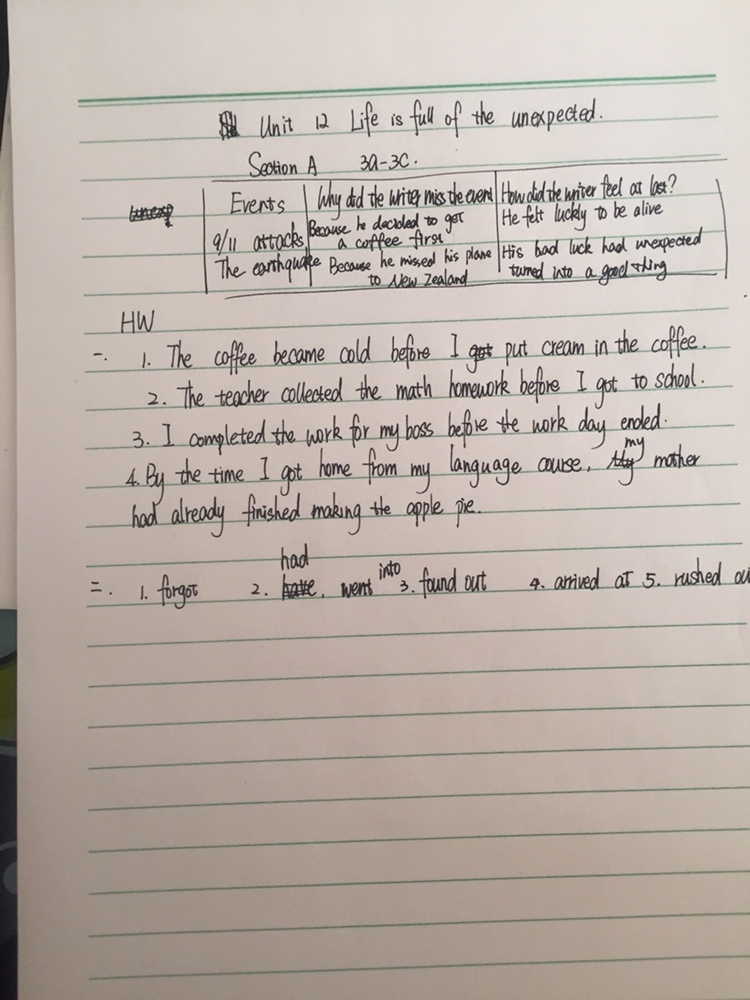 Unit 12 Life is full of the unexpected.
Section A 3a-3c.
Events Why did the writer miss the event How did the writer feel at last?
9/11 attacks Because he decided to get a coffee first He felt luckly to be alive
The earthquake Because he missed his plane to New Zealand His bad luck had unexpected turned into a good thing
HW
一. 1. The coffee became cold before I put cream in the coffee.
2. The teacher collected the math homework before I got to school.
3. I completed the work for my boss before the work day ended.
4. By the time I got home from my language course, my mother
had already finished making the apple pie.
二. 1. forgot 2. had, went into 3. found out 4. arrived at 5. rushed ou